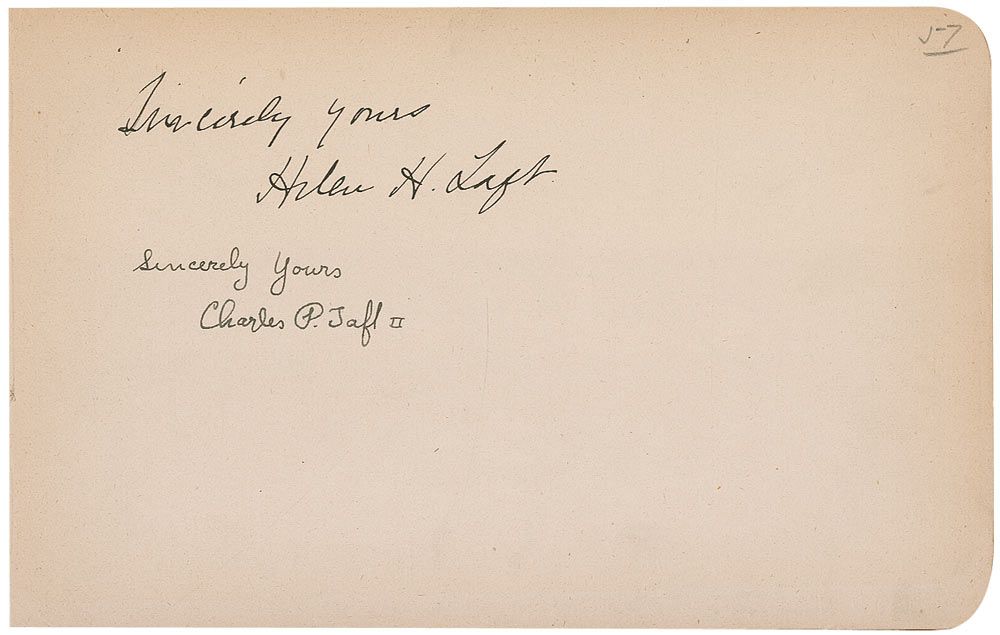 57
Sincerely yours
Helen H. Taft.
Sincerely Yours
Charles P. Taft II